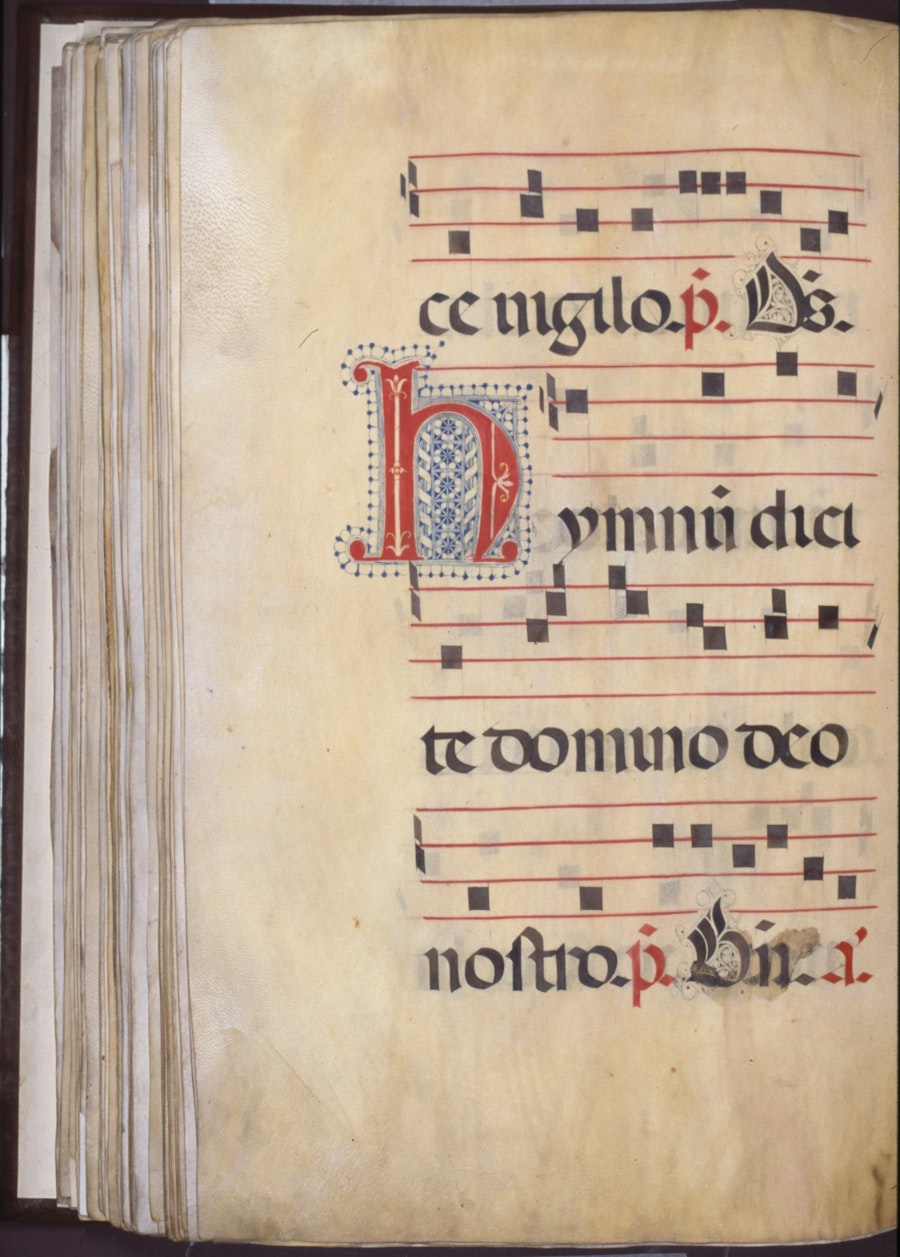 ce uigilo. p̄. Ds̄.
hymnū dici
te domino deo
nostro. p̄. Bn̄. a'.